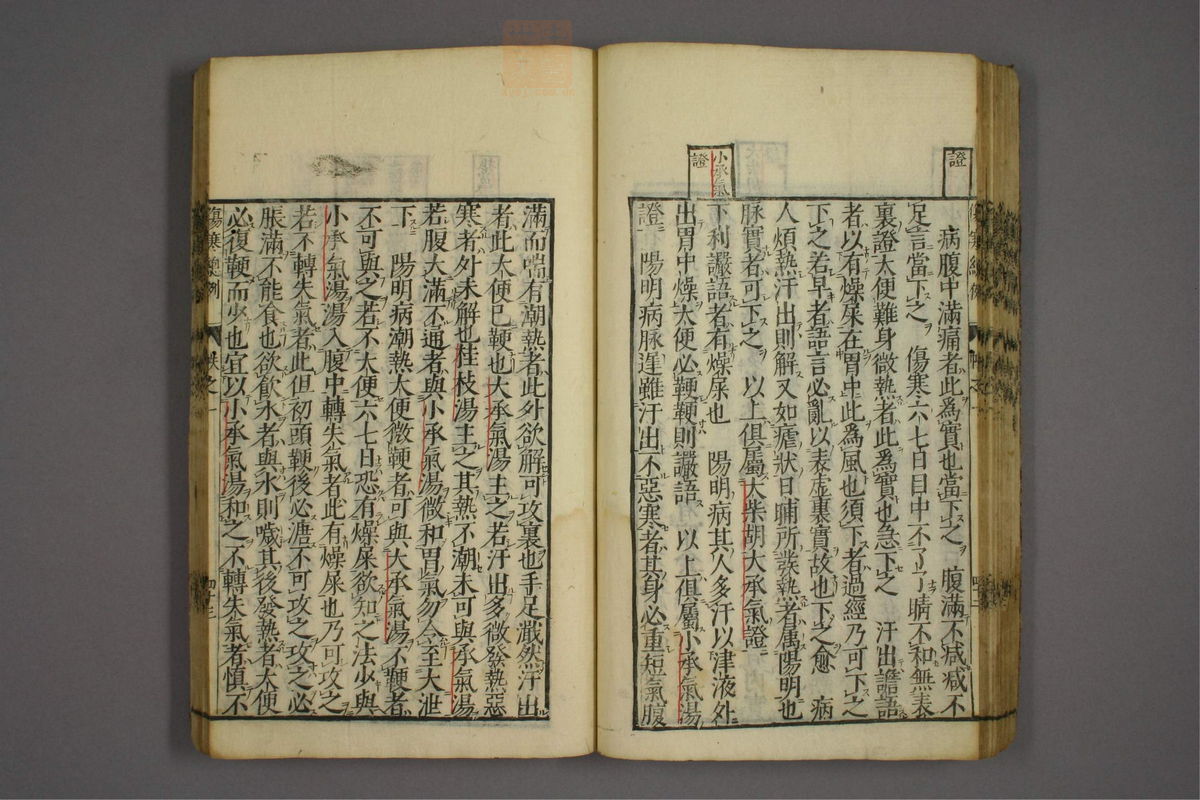 證
病腹中滿痛者此爲實也當下之 腹滿不減減不
足言當下之 傷寒六七日目中不了了睛不和無表
裏證大便難身微熱者此爲實也急下之 汗出譫語
者以有燥屎在胃中此爲風也須下者過經乃可下之
下之若早者語言必亂以表虛裏實故也下之愈 病
人煩熱汗出則解又如瘧狀日晡所發熱者屬陽明也
脉實者可下之 以上俱屬大柴胡大承氣證
小承氣
證
下利讝語者有燥屎也 陽明病其人多汗以津液外
出胃中燥大便必鞕鞕則讝語 以上俱屬小承氣湯
證 陽明病脉遲雖汗出不惡寒者其身必重短氣腹
滿而喘有潮熱者此外欲解可攻裏也手足濈然汗出
者此大便已鞕也大承氣湯主之若汗出多微發熱惡
寒者外未解也桂枝湯主之其熱不潮未可與承氣湯
若腹大滿不通者與小承氣湯微和胃氣勿令至大泄
下 陽明病潮熱大便微鞕者可與大承氣湯不鞕者
不可與之若不大便六七日恐有燥屎欲知之法少與
小承氣湯湯入腹中轉失氣者此有燥屎也乃可攻之
若不轉失氣者此但初頭鞕後必溏不可攻之攻之必
脹滿不能食也欲飮水者與水則噦其後發熱者大便
必復鞕而少也宜以小承氣湯和之不轉失氣者愼不
傷寒便例 卷之一 四十三